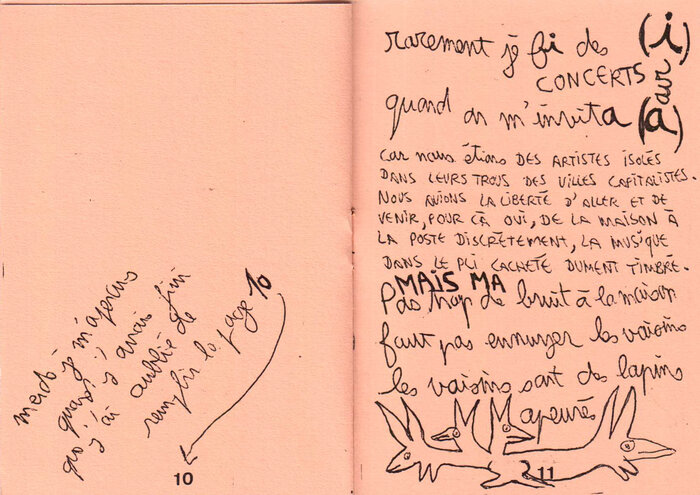 merdò
je m'aperçus
oublié de
remplir la page 10
10
rarement je fi des (i)
CONCERTS
quand on m'invita (a
car nous étions DES ARTISTES ISOLÉS
DANS LEURS TROUS DES VILLES CAPITALISTES.
NOUS AVIONS LA LIBERTÉ D'ALLER ET DE
VENIR, POUR ÇÀ OUI, DE LA MAISON À
LA POSTE DISCRÈTEMENT, LA MUSIQUE
DANS LE PLI CACHETÉ DUMENT TIMBRÉ.
MAIS MA
Pas trop de bruit à la maison
faut pas ennuyer les vaisins
les vaisins sont des lapins
apeurés
11